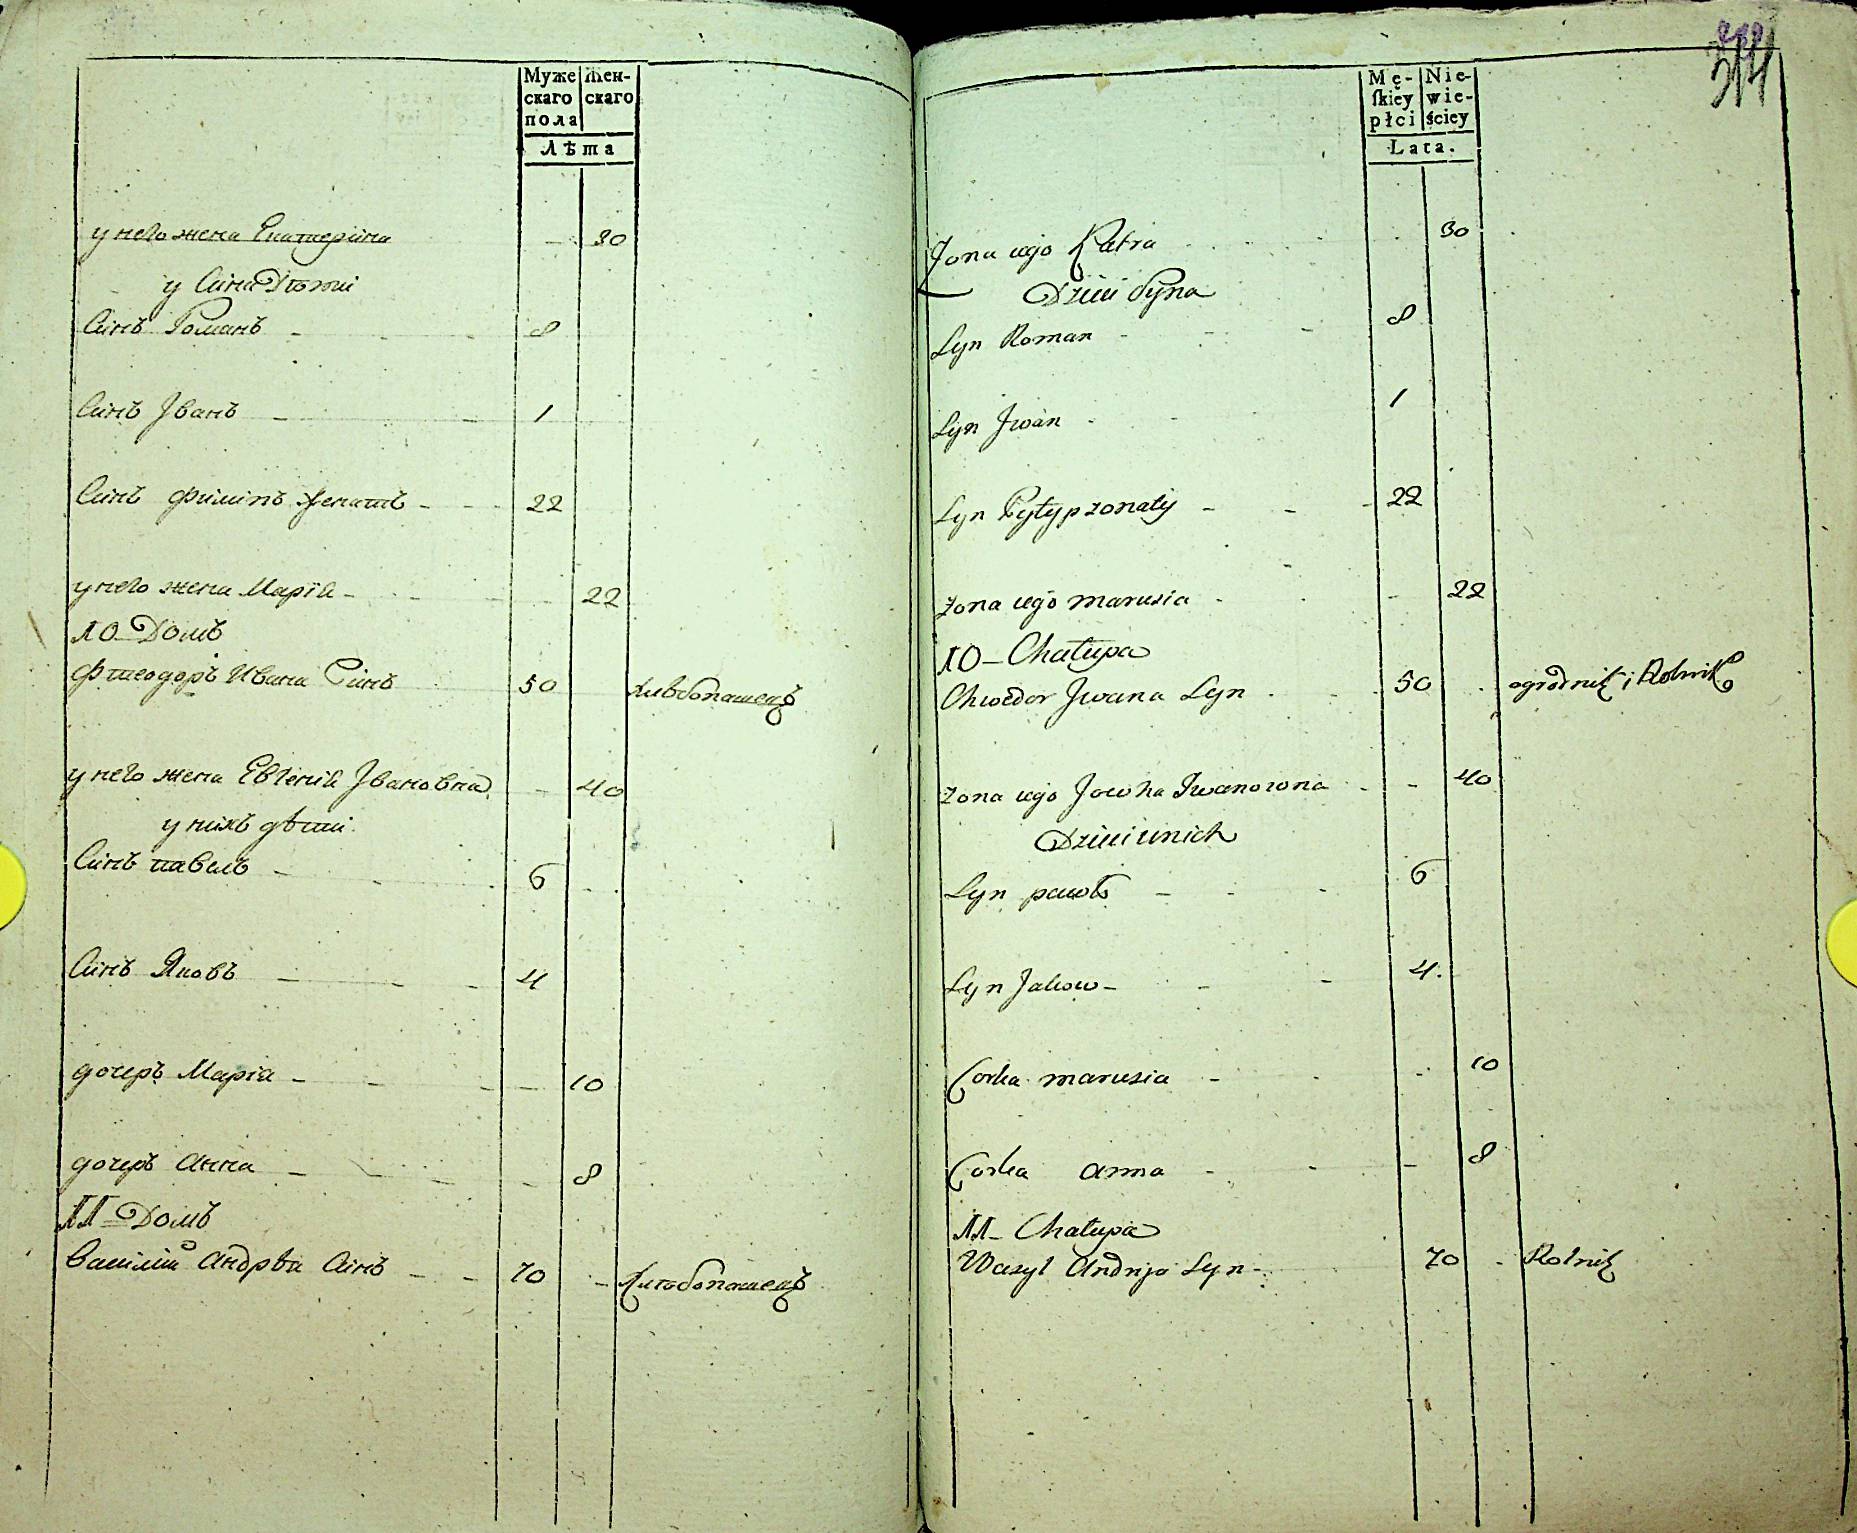 Муже
скаго
пола
Жен-
скаго
Лѣта
у него жена Екатерина - 30
у Сина Дѣти
Синъ Романъ - 8
Синъ Іванъ - 1
Синъ Филипъ женатъ - 22
у него жена Марія - 22
10 Домъ
Фтеодоръ Ивана Синъ 50 Хлѣбопашецъ
у него жена Евгенія Івановна - 40
у нихъ дѣти
Синъ павелъ - 6
Синъ Яковъ - 4
дочеръ Марія - 10
дочеръ Анна - 8
11 Домъ
Василій Андрѣя Синъ - 70 - Хлѣбопашецъ
Mę-
skiey
płci
Nie-
wie-
ściey
Lata.
Żona iego Katra 30
Dzieci Syna
Syn Roman - 8
Syn Jwan - 1
Syn Pyłyp zonaty - 22
zona iego marusia - 22
10 - Chałupa
Chwedor Jwana Syn 50 ogrodnik i Rolnik
zona iego Jowha Iwanowna - 40
Dzieci unich
Syn pawło - 6
Syn Jakow - 4.
Corka marusia - 10
Corka anna - 8
11 - Chałupa
Wasyl Andryja Syn - 70 - Rolnik